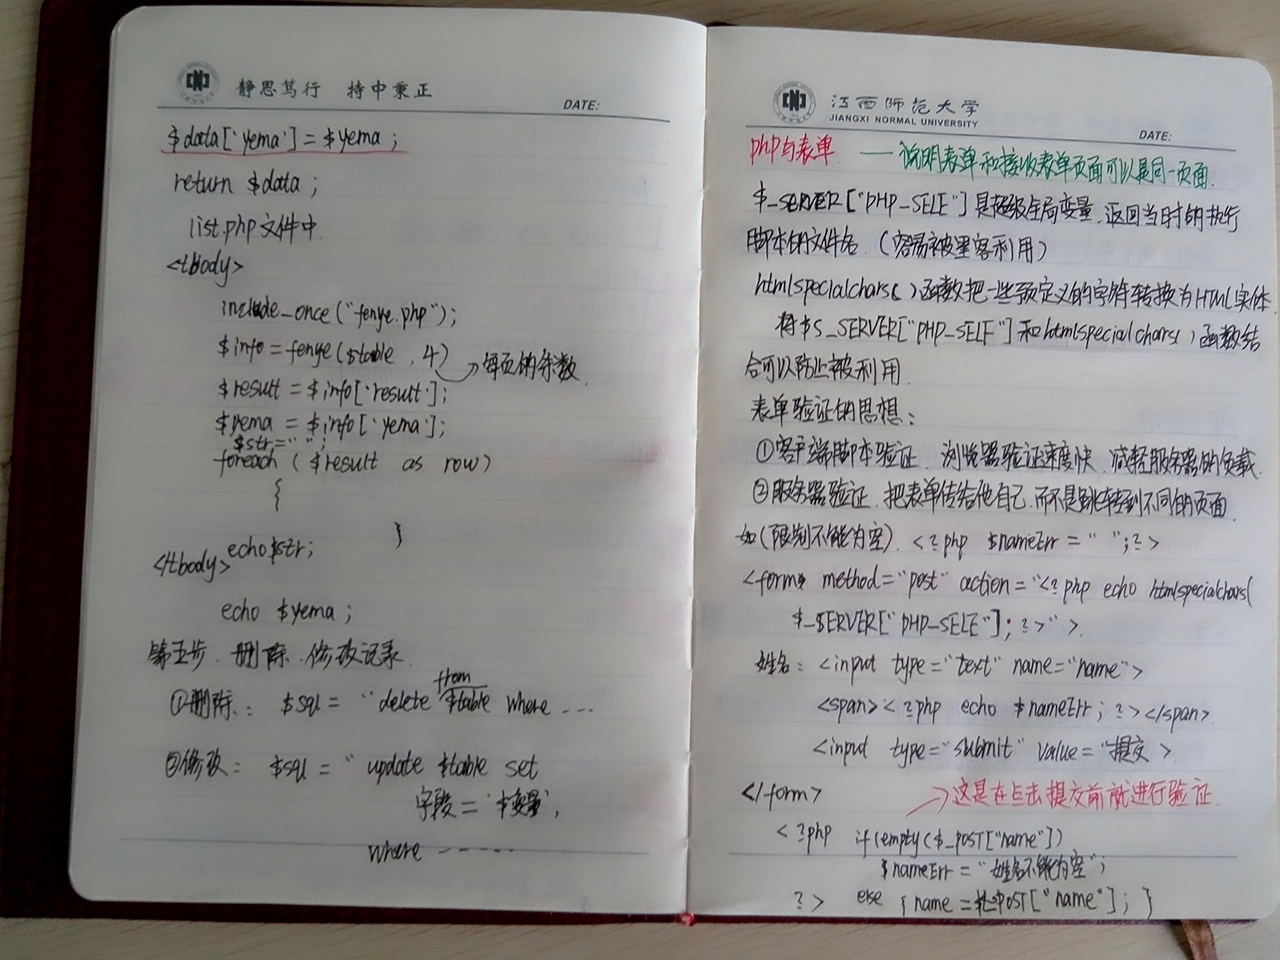 静思笃行 持中秉正
DATE:
$data['yema'] = $yema ;
return $data ;
list.php文件中
<tbody>
include_once("fenye.php");
$info = fenye($table , 4) 每页的条数
$result = $info['result'];
$yema = $info['yema'];
$str=" ";
foreach ( $result as row)
{
}
echo $str;
</tbody>
echo $yema ;
第五步 删除、修改记录
①删除: $sql = " delete from $table where ---
②修改: $sql = " update $table set
字段 = '$变量',
where ------
江西师范大学
JIANGXI NORMAL UNIVERSITY
DATE:
php与表单 —— 说明表单和接收表单页面可以是同一页面.
$_SERVER["PHP_SELF"]是超级全局变量,返回当时的执行
脚本的文件名.(容易被黑客利用)
htmlspecialchars()函数把一些预定义的字符转换为HTML实体.
将$S_SERVER["PHP_SELF"]和htmlspecialchars()函数结
合可以防止被利用.
表单验证的思想:
①客户端脚本验证. 浏览器验证速度快,减轻服务器的负载.
②服务器验证. 把表单传给他自己,而不是跳转到不同的页面.
如(限制不能为空). <?php $nameErr = " ";?>
<form method="post" action="<?php echo htmlspecialchars(
$_SERVER["PHP_SELF"]; ?>" >.
姓名: <input type="text" name="name">
<span><?php echo $nameErr; ?></span>.
<input type="submit" value="提交 >
</form> 这是在点击提交前就进行验证.
<?php if(empty($_POST["name"])
$nameErr = "姓名不能为空";
?> else { name = $_POST["name"]; }